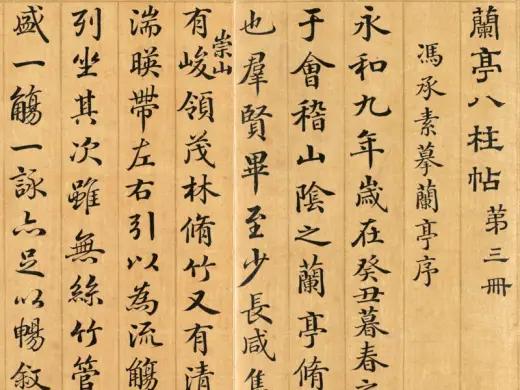 蘭亭八柱帖 第三冊
馮承素摹蘭亭序
永和九年歲在癸丑暮春
于會稽山陰之蘭亭脩
也羣賢畢至少長咸集
有崇山峻領茂林脩竹又有清
湍暎帶左右引以為流觴
列坐其次雖無絲竹管
盛一觴一詠亦足以暢敘